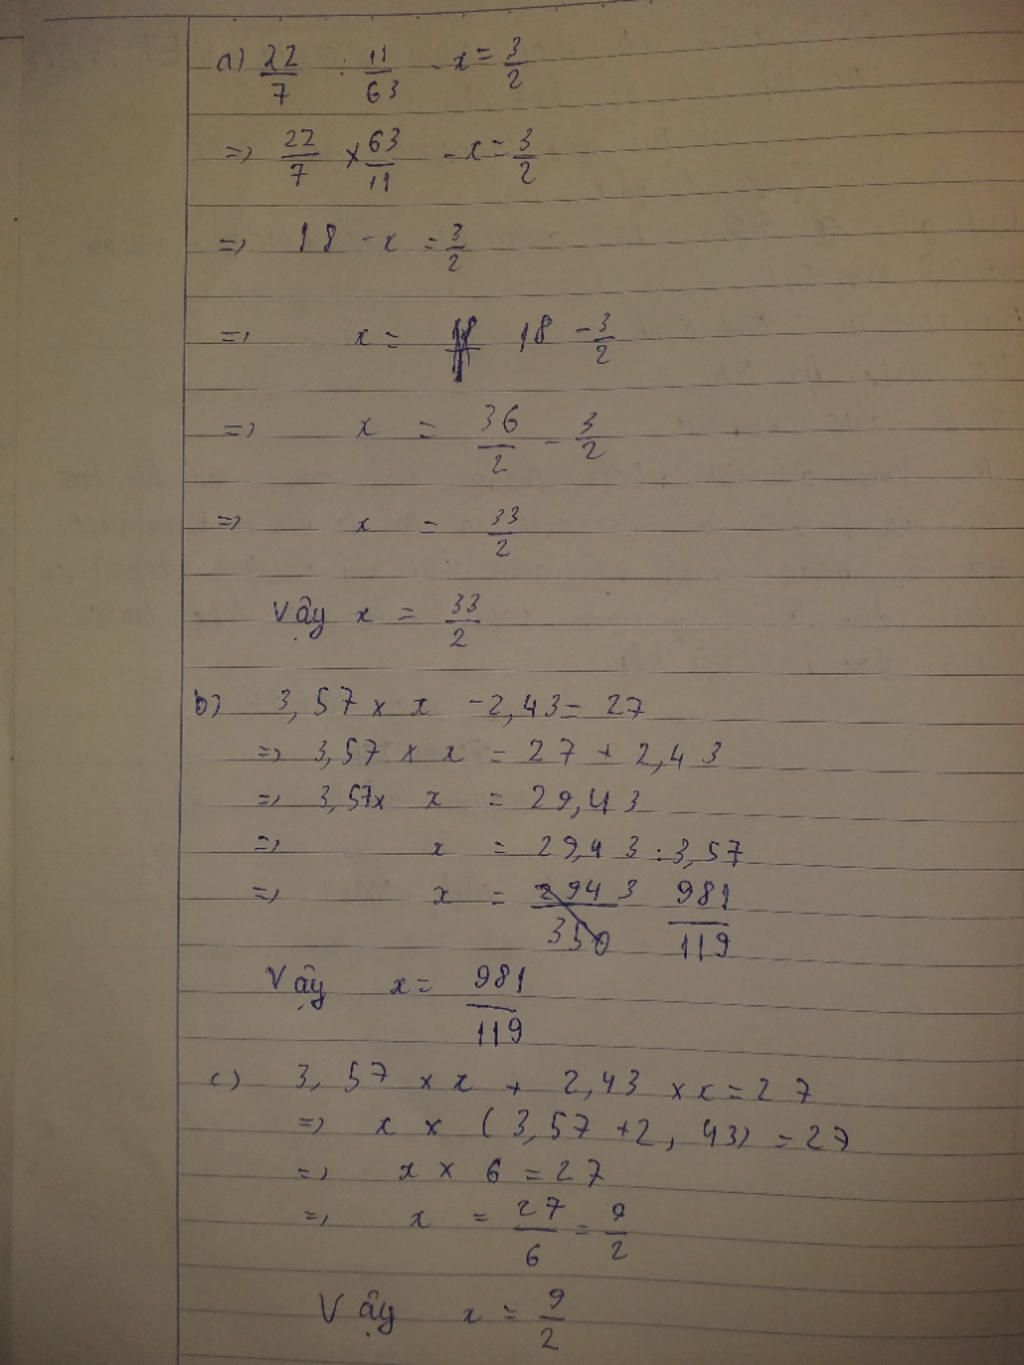 a) 22/7 : 11/63 - x = 3/2
=> 22/7 × 63/11 - x = 3/2
=> 18 - x = 3/2
=> x = 18 - 3/2
=> x = 36/2 - 3/2
=> x = 33/2
Vậy x = 33/2
b) 3,57 × x - 2,43 = 27
=> 3,57 × x = 27 + 2,43
=> 3,57 × x = 29,43
=> x = 29,43 : 3,57
=> x = 2943/350 981/119
Vậy x = 981/119
c) 3,57 × x + 2,43 × x = 27
=> x × (3,57 + 2,43) = 27
=> x × 6 = 27
=> x = 27/6 = 9/2
Vậy x = 9/2